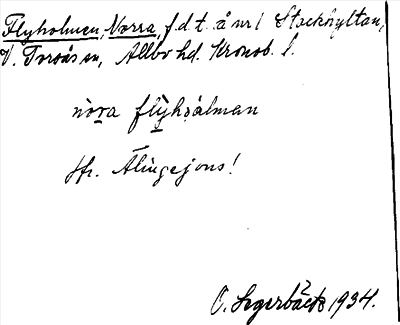 Flyholmen, Norra, f.d.t. å nr 1 Stockhyltan,
V. Torsås sn, Allbo hd. Kronob. l.
nòra flỳhsàlman
Jfr. Älingejons!
O. Segerbäck 1934.